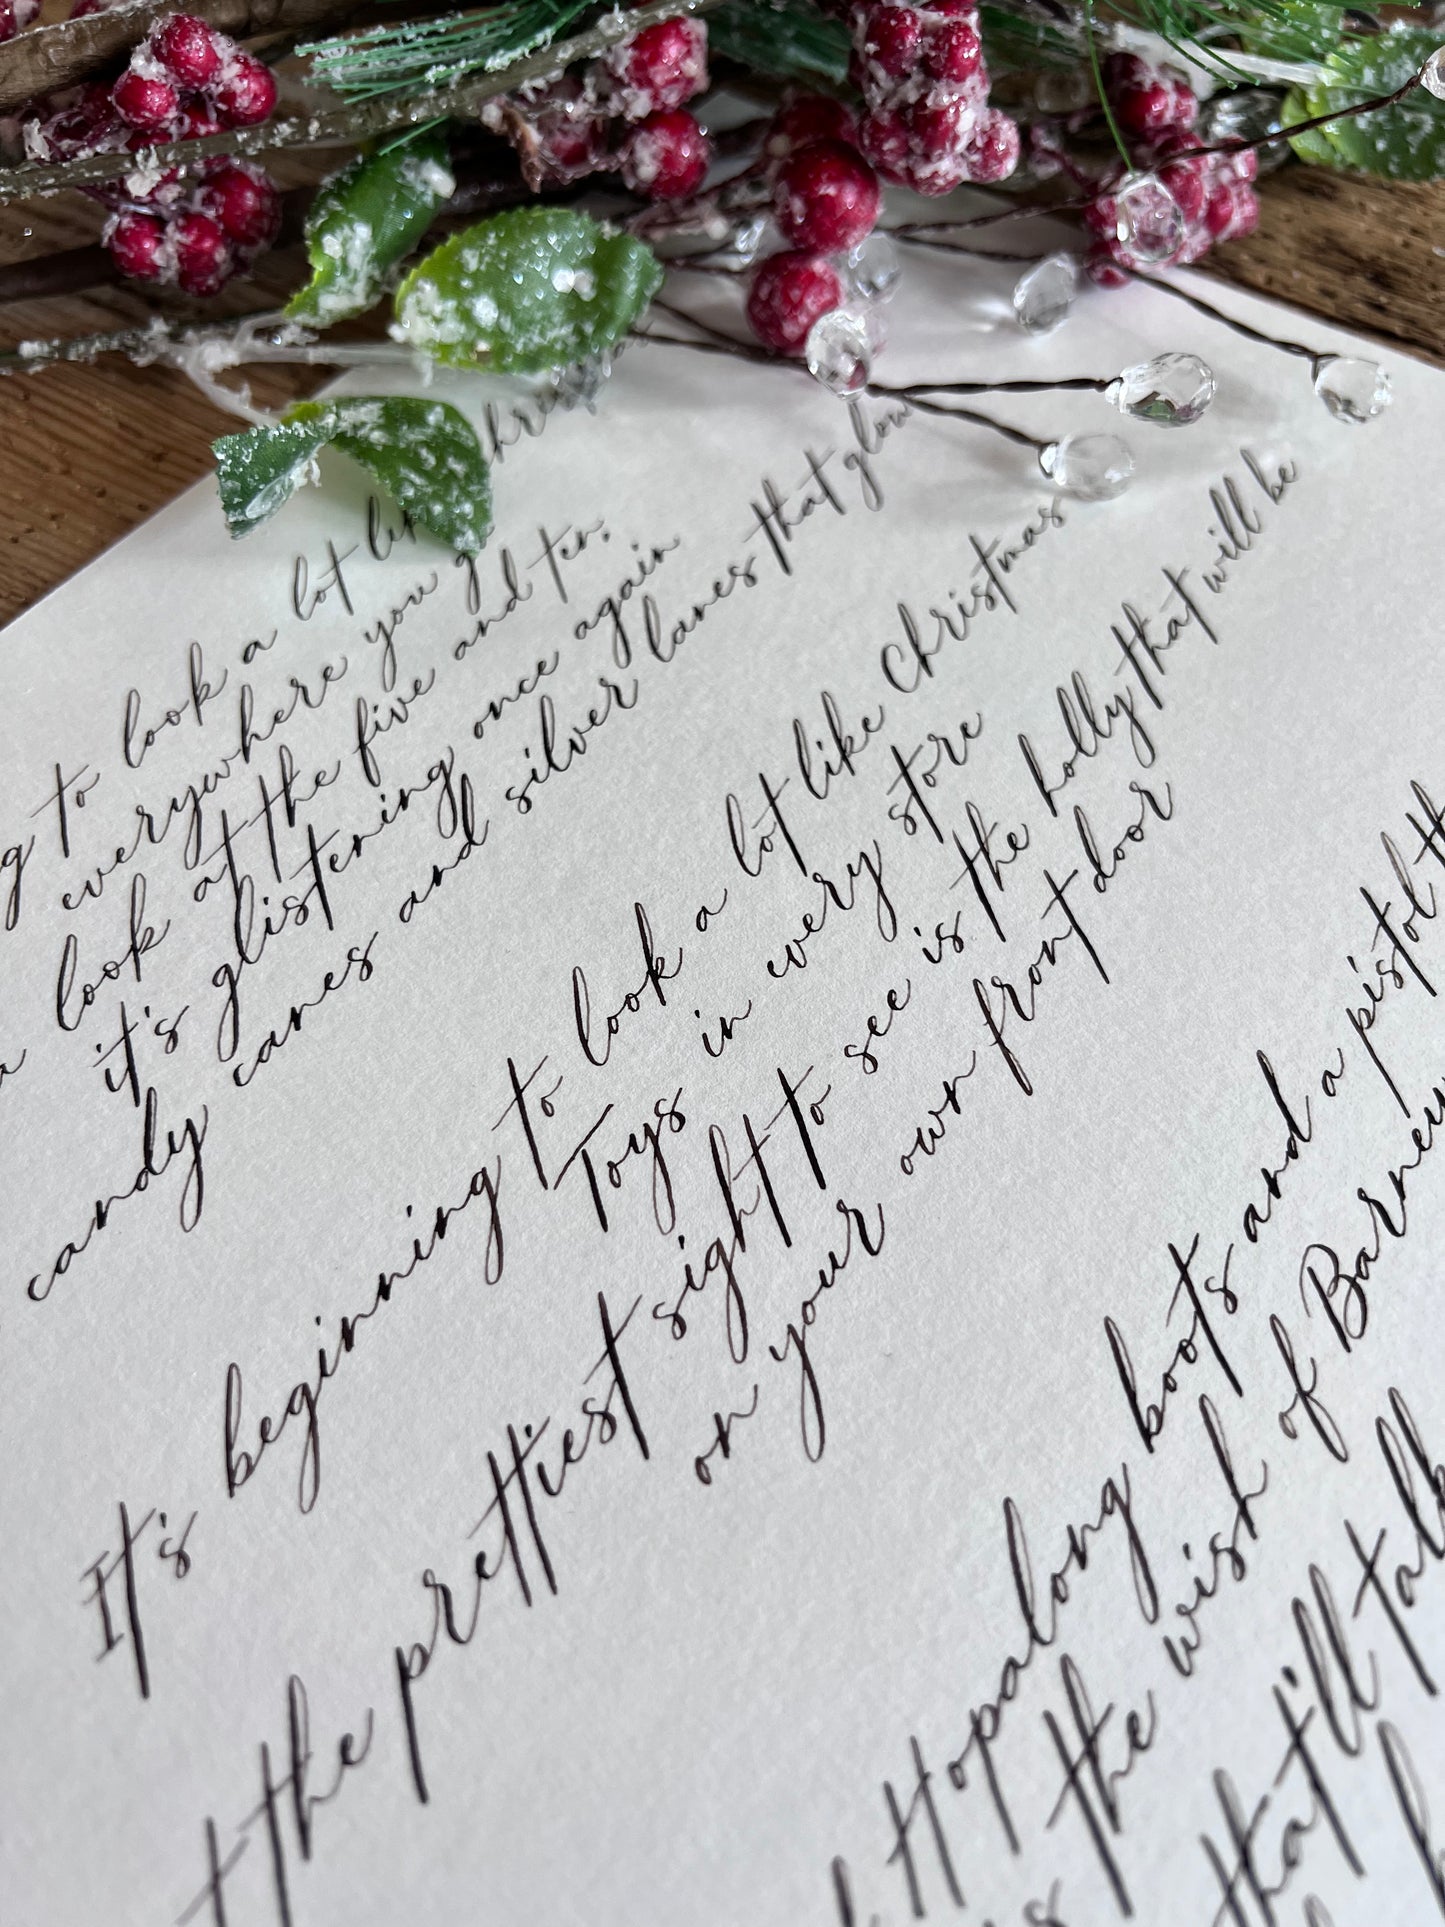 g to look a lot
everywhere you
look at the five and ten,
it's glistening once again
candy canes and silver lanes that glow
It's beginning to look a lot like Christmas
Toys in every store
the prettiest sight to see is the holly that will be
on your own front door
Hopalong boots and a pistol
the wish of Barney
that'll talk